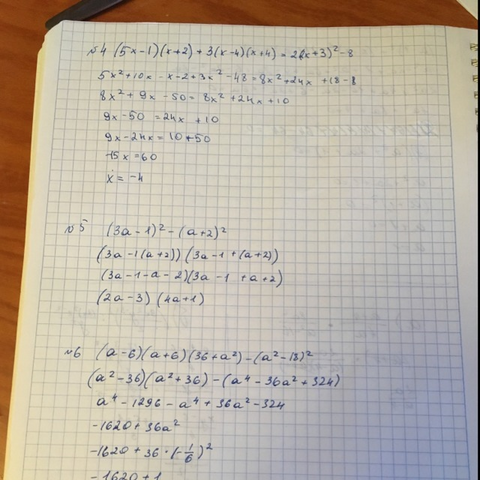 №4 (5x-1)(x+2)+3(x-4)(x+4)=2(2x+3)²-8
5x²+10x-x-2+3x²-48=8x²+24x+18-8
8x²+9x-50=8x²+24x+10
9x-50=24x+10
9x-24x=10+50
-15x=60
x=-4
№5 (3a-1)²-(a+2)²
(3a-1(a+2))(3a-1+(a+2))
(3a-1-a-2)(3a-1+a+2)
(2a-3)(4a+1)
№6 (a-6)(a+6)(36+a²)-(a²-18)²
(a²-36)(a²+36)-(a⁴-36a²+324)
a⁴-1296-a⁴+36a²-324
-1620+36a²
-1620+36·(-1/6)²
-1620+1